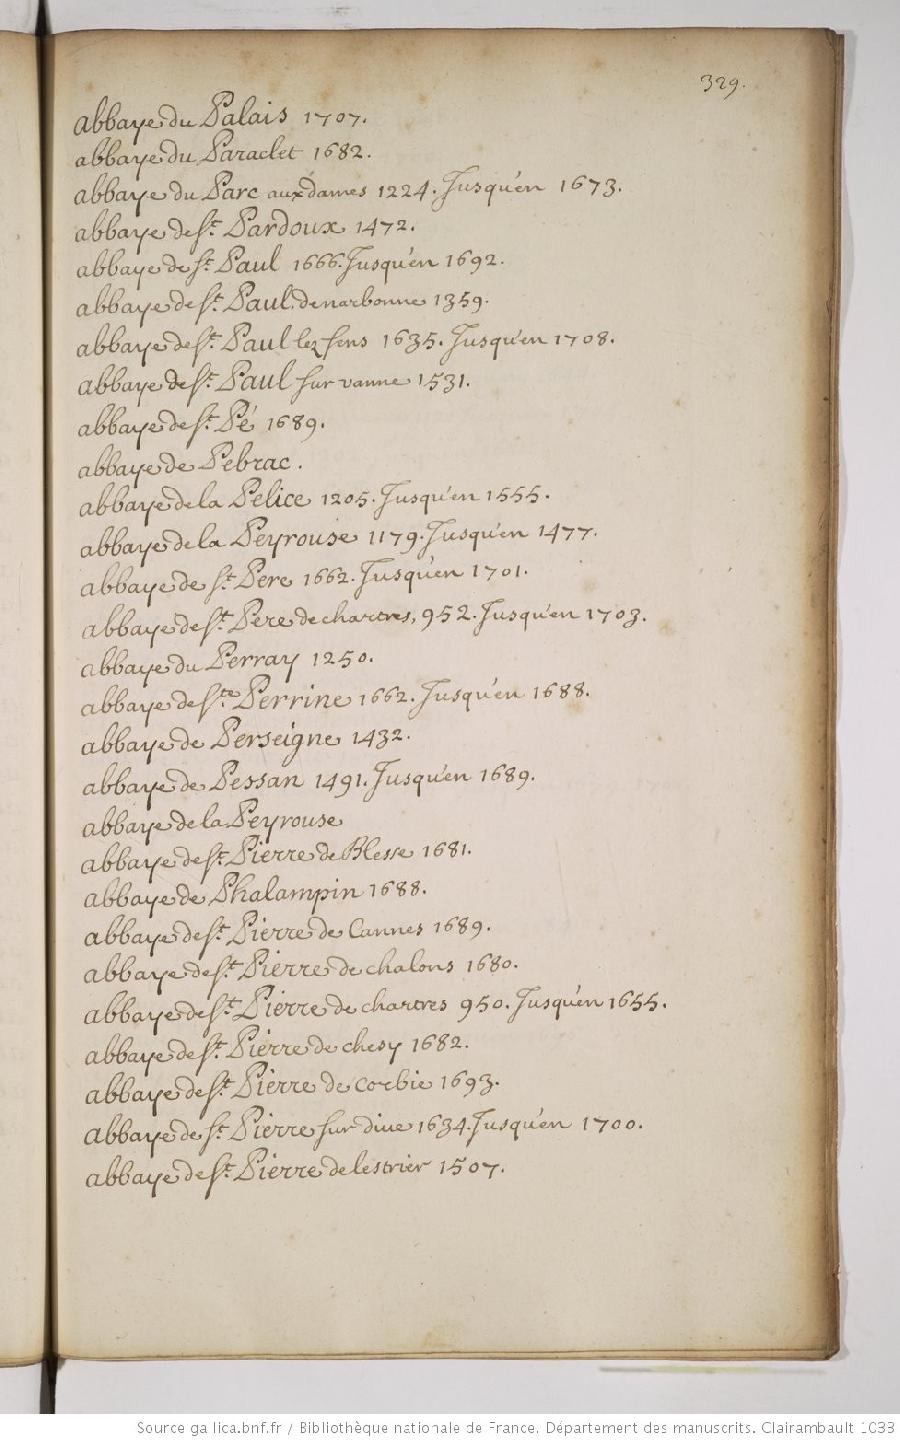 329.
abbaye du Palais 1707.
abbaye du Paraclet 1682.
abbaye du Parc aux dames 1224. Jusqu'en 1673.
abbaye de St. Pardoux 1472.
abbaye de St. Paul 1666. Jusqu'en 1692.
abbaye de St. Paul de narbonne 1359.
abbaye de St. Paul lez sens 1635. Jusqu'en 1708.
abbaye de St. Paul sur vanne 1531.
abbaye de St. Pé 1689.
abbaye de Pebrac.
abbaye de la Pelice 1205. Jusqu'en 1555.
abbaye de la Peyrouse 1179. Jusqu'en 1477.
abbaye de St. Pere 1662. Jusqu'en 1701.
abbaye de St. Pere de chartres, 952. Jusqu'en 1703.
abbaye du Perray 1250.
abbaye de Ste. Perrine 1662. Jusqu'en 1688.
abbaye de Perseigne 1432.
abbaye de Pessan 1491. Jusqu'en 1689.
abbaye de la Peyrouse
abbaye de St. Pierre de Blesse 1681.
abbaye de Phalampin 1688.
abbaye de St. Pierre de Cannes 1689.
abbaye de St. Pierre de chalons 1680.
abbaye de St. Pierre de chartres 950. Jusqu'en 1655.
abbaye de St. Pierre de chesy 1682.
abbaye de St. Pierre de Corbie 1693.
abbaye de St. Pierre sur dive 1634. Jusqu'en 1700.
abbaye de St. Pierre de lestrier 1507.
Source gallica.bnf.fr / Bibliothèque nationale de France. Département des manuscrits. Clairambault 1033